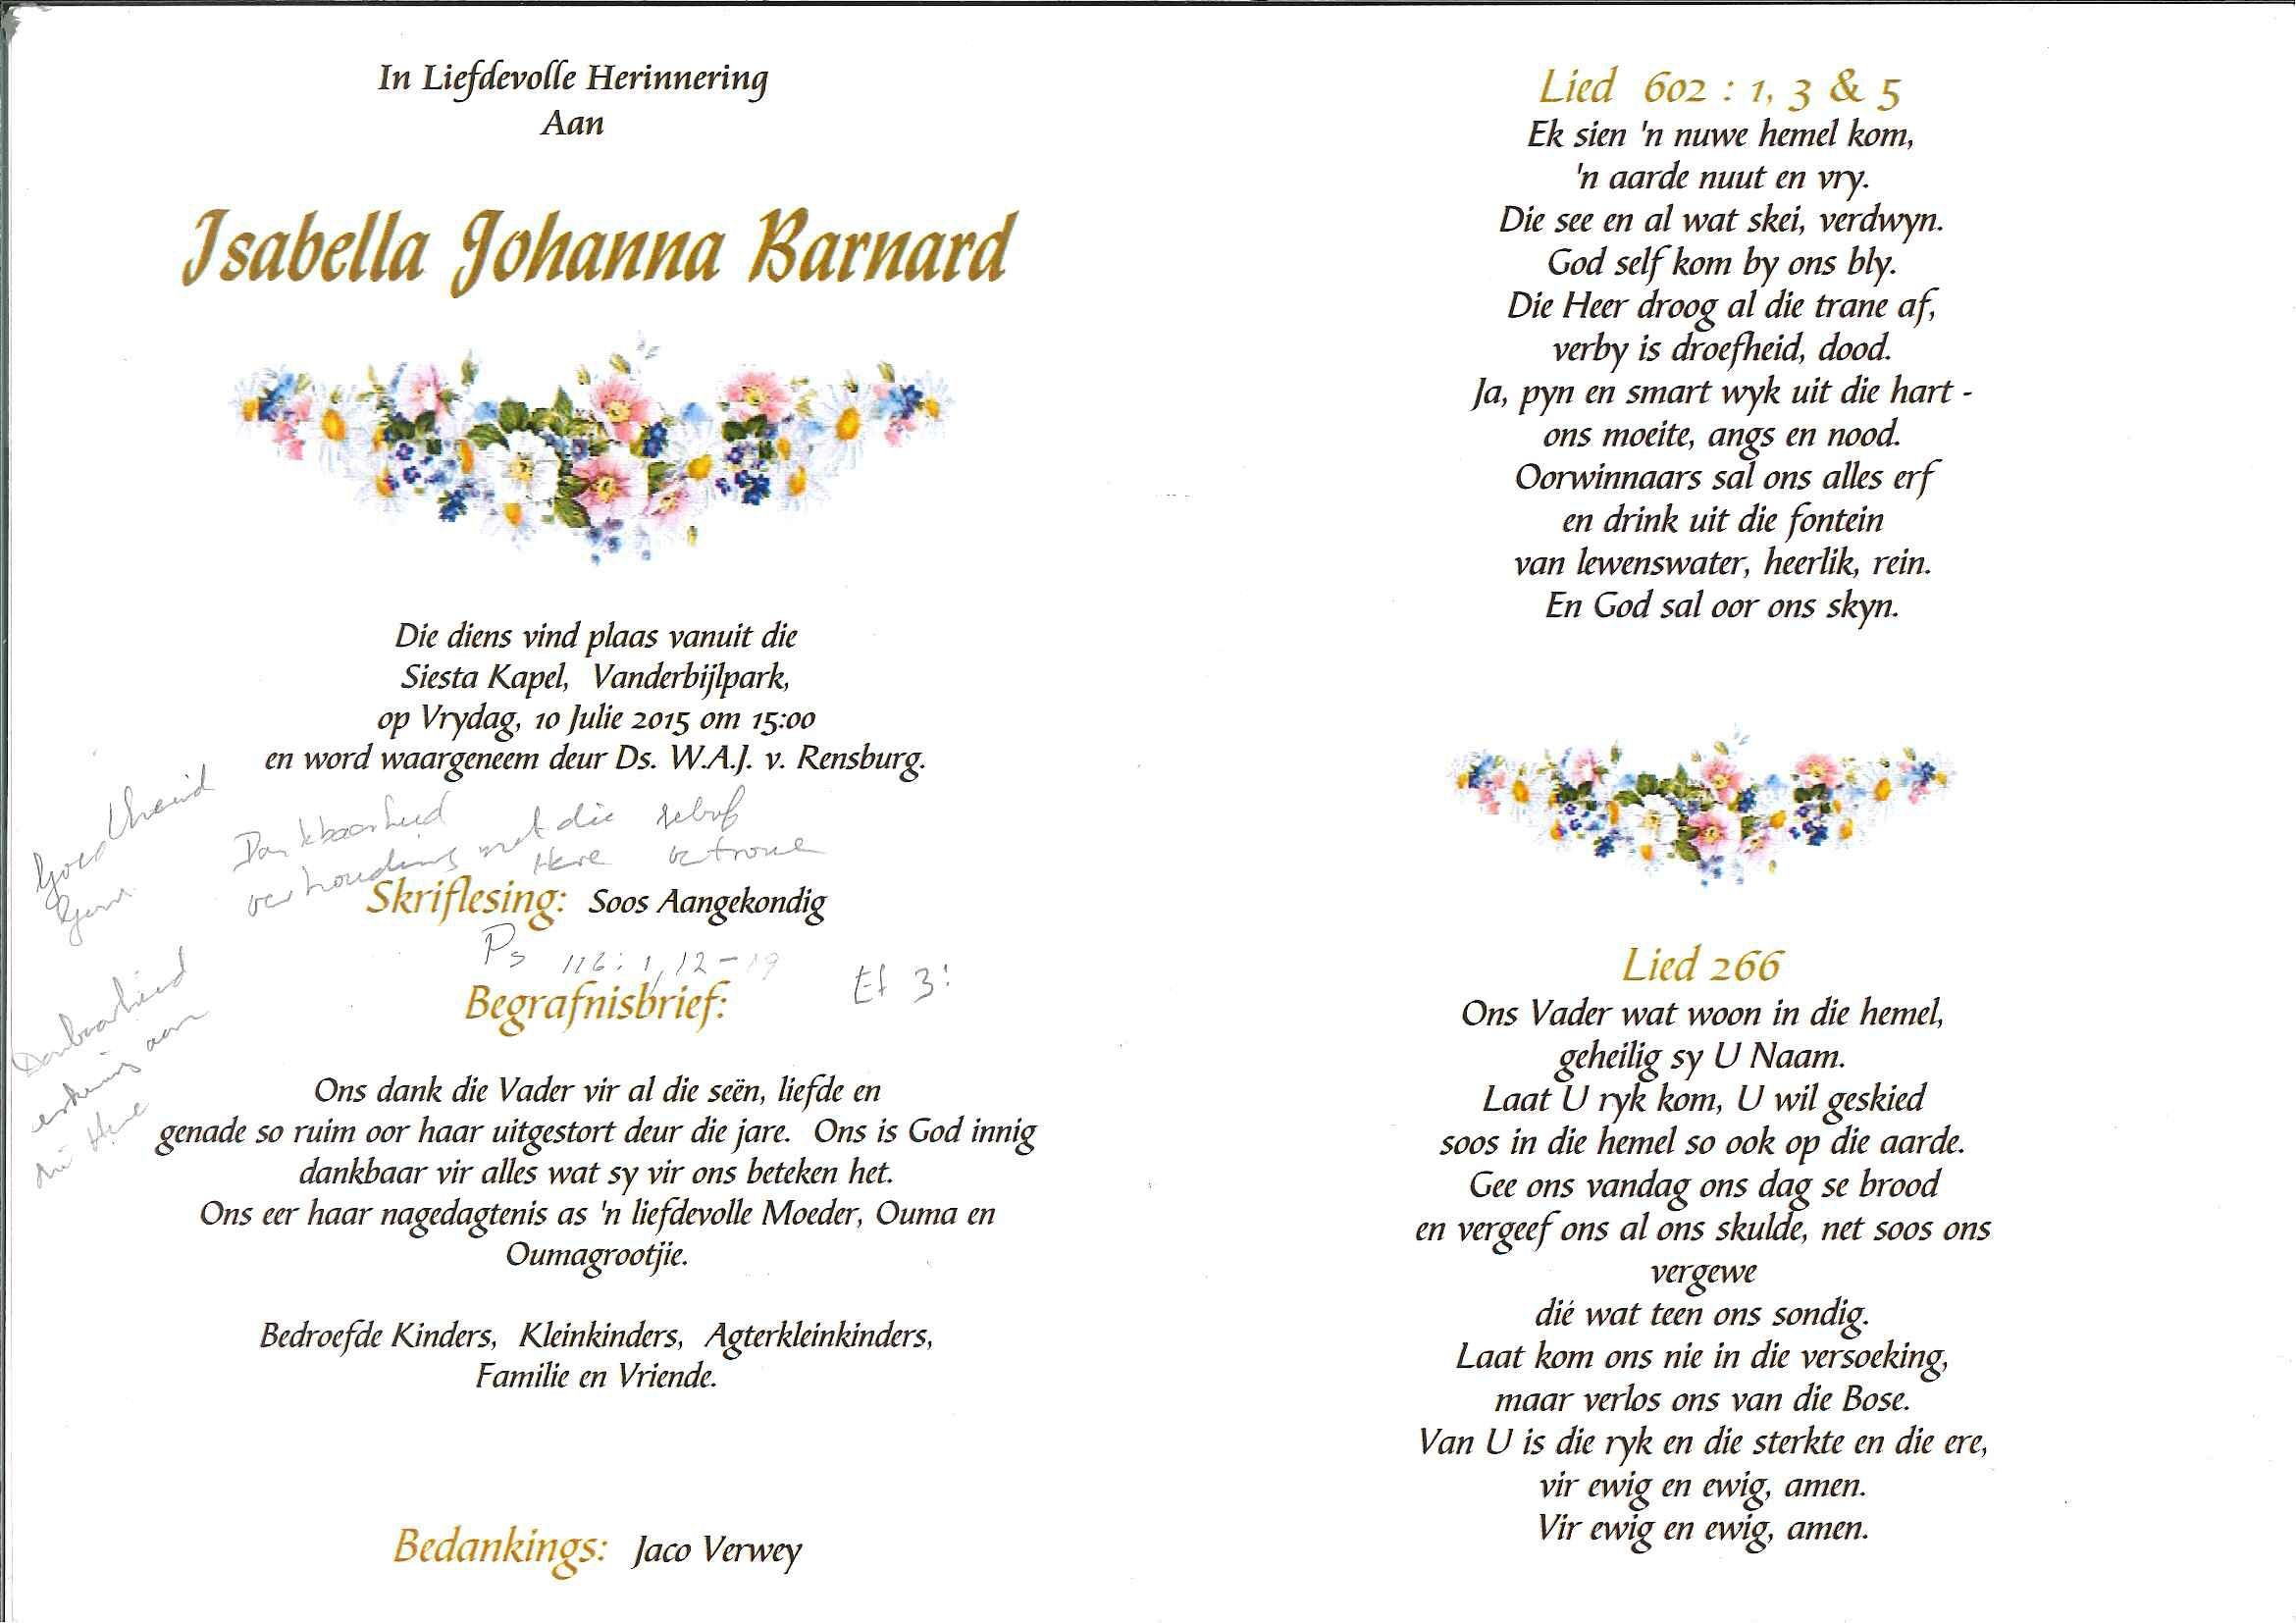 In Liefdevolle Herinnering
Aan
Isabella Johanna Barnard
Die diens vind plaas vanuit die
Siesta Kapel, Vanderbijlpark,
op Vrydag, 10 Julie 2015 om 15:00
en word waargeneem deur Ds. W.A.J. v. Rensburg.
Goedheid
Dankbaarheid
verhouding met die
Here
Skriflesing: Soos Aangekondig
Ps 116: 1, 12-19
Ef 3:
Begrafnisbrief:
aan
die Here
Ons dank die Vader vir al die seën, liefde en
genade so ruim oor haar uitgestort deur die jare. Ons is God innig
dankbaar vir alles wat sy vir ons beteken het.
Ons eer haar nagedagtenis as 'n liefdevolle Moeder, Ouma en
Oumagrootjie.
Bedroefde Kinders, Kleinkinders, Agterkleinkinders,
Familie en Vriende.
Bedankings: Jaco Verwey
Lied 602 : 1, 3 & 5
Ek sien 'n nuwe hemel kom,
'n aarde nuut en vry.
Die see en al wat skei, verdwyn.
God self kom by ons bly.
Die Heer droog al die trane af,
verby is droefheid, dood.
Ja, pyn en smart wyk uit die hart -
ons moeite, angs en nood.
Oorwinnaars sal ons alles erf
en drink uit die fontein
van lewenswater, heerlik, rein.
En God sal oor ons skyn.
Lied 266
Ons Vader wat woon in die hemel,
geheilig sy U Naam.
Laat U ryk kom, U wil geskied
soos in die hemel so ook op die aarde.
Gee ons vandag ons dag se brood
en vergeef ons al ons skulde, net soos ons
vergewe
dié wat teen ons sondig.
Laat kom ons nie in die versoeking,
maar verlos ons van die Bose.
Van U is die ryk en die sterkte en die ere,
vir ewig en ewig, amen.
Vir ewig en ewig, amen.